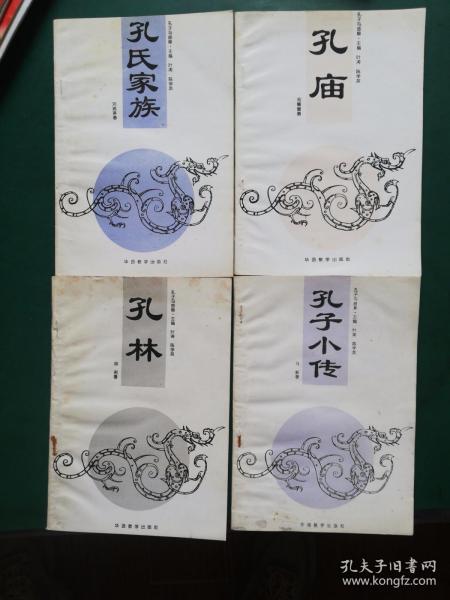 孔氏家族
孔子与曲阜·主编 叶涛 陈学英
华语教学出版社
孔庙
孔子与曲阜·主编 叶涛 陈学英
华语教学出版社
孔林
孔子与曲阜·主编 叶涛 陈学英
华语教学出版社
孔子小传
孔子与曲阜·主编 叶涛 陈学英
华语教学出版社
孔夫子旧书网
www.kongfz.com